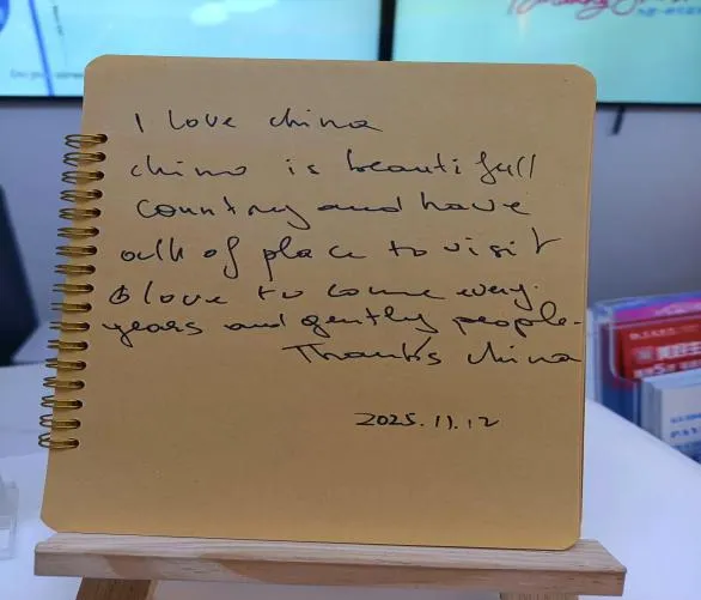 I love china
china is beautifull
country and have
of place to visit
love to come every
years and gently people.
Thanks china
2025.11.12